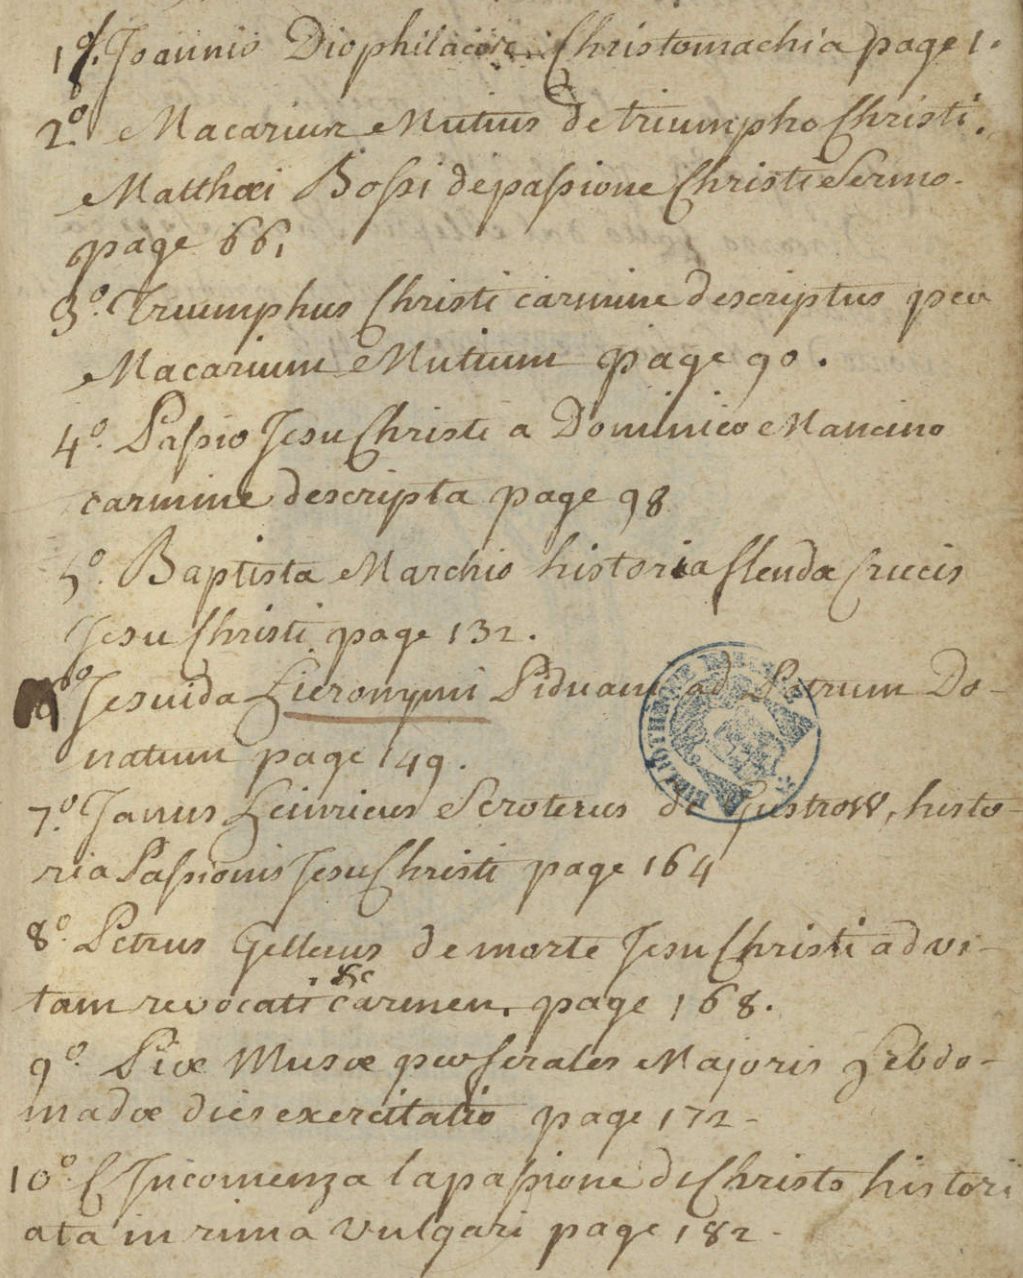 1º. Joannis Diophilacis Christomachia page 1.
2º. Macarius Mutius de triumpho Christi.
Matthæi Bossi de passione Christi Sermo.
page 66.
3º. Triumphus Christi carmine descriptus per
Macarium Mutium page 90.
4º. Passio Jesu Christi a Dominico Mancino
carmine descripta page 98
5º. Baptista Marchio historia flenda Crucis
Jesu Christi page 132.
6º Jesuida Hieronymi Paduani ad Petrum Do-
natum page 149.
7º. Janus Heinricus Scroterus de Gustrow, histo-
ria Passionis Jesu Christi page 164
8º. Petrus Gelleus de morte Jesu Christi ad vi-
tam revocati &c carmen. page 168.
9º. Piæ Musæ per ferales Majoris hebdo-
madæ dies exercitatio page 172-
10º. Incomenza la passione di Christo histori
ata in rima vulgari page 182-
BIBLIOTHEQUE